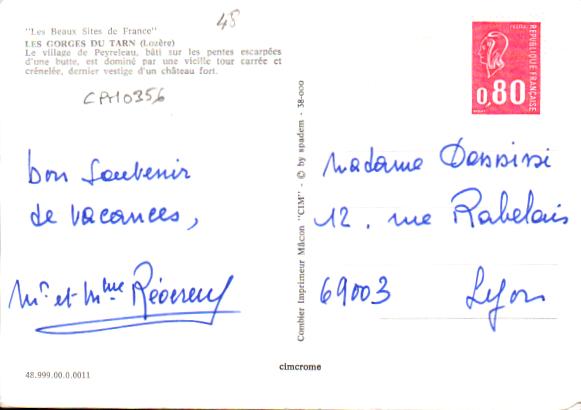 45
"Les Beaux Sites de France"
LES GORGES DU TARN (Lozère)
Le village de Peyreleau, bâti sur les pentes escarpées
d'une butte, est dominé par une vieille tour carrée et
crénelée, dernier vestige d'un château fort.
CPM10356
bon souvenir
de vacances,
Mr et Mme
48.999.00.0.0011
Combier Imprimeur Mâcon "CIM" - © by spadem - 38-000
cimcrome
POSTES
REPUBLIQUE FRANÇAISE
0,80
Madame
12, rue Rabelais
69003 Lyon